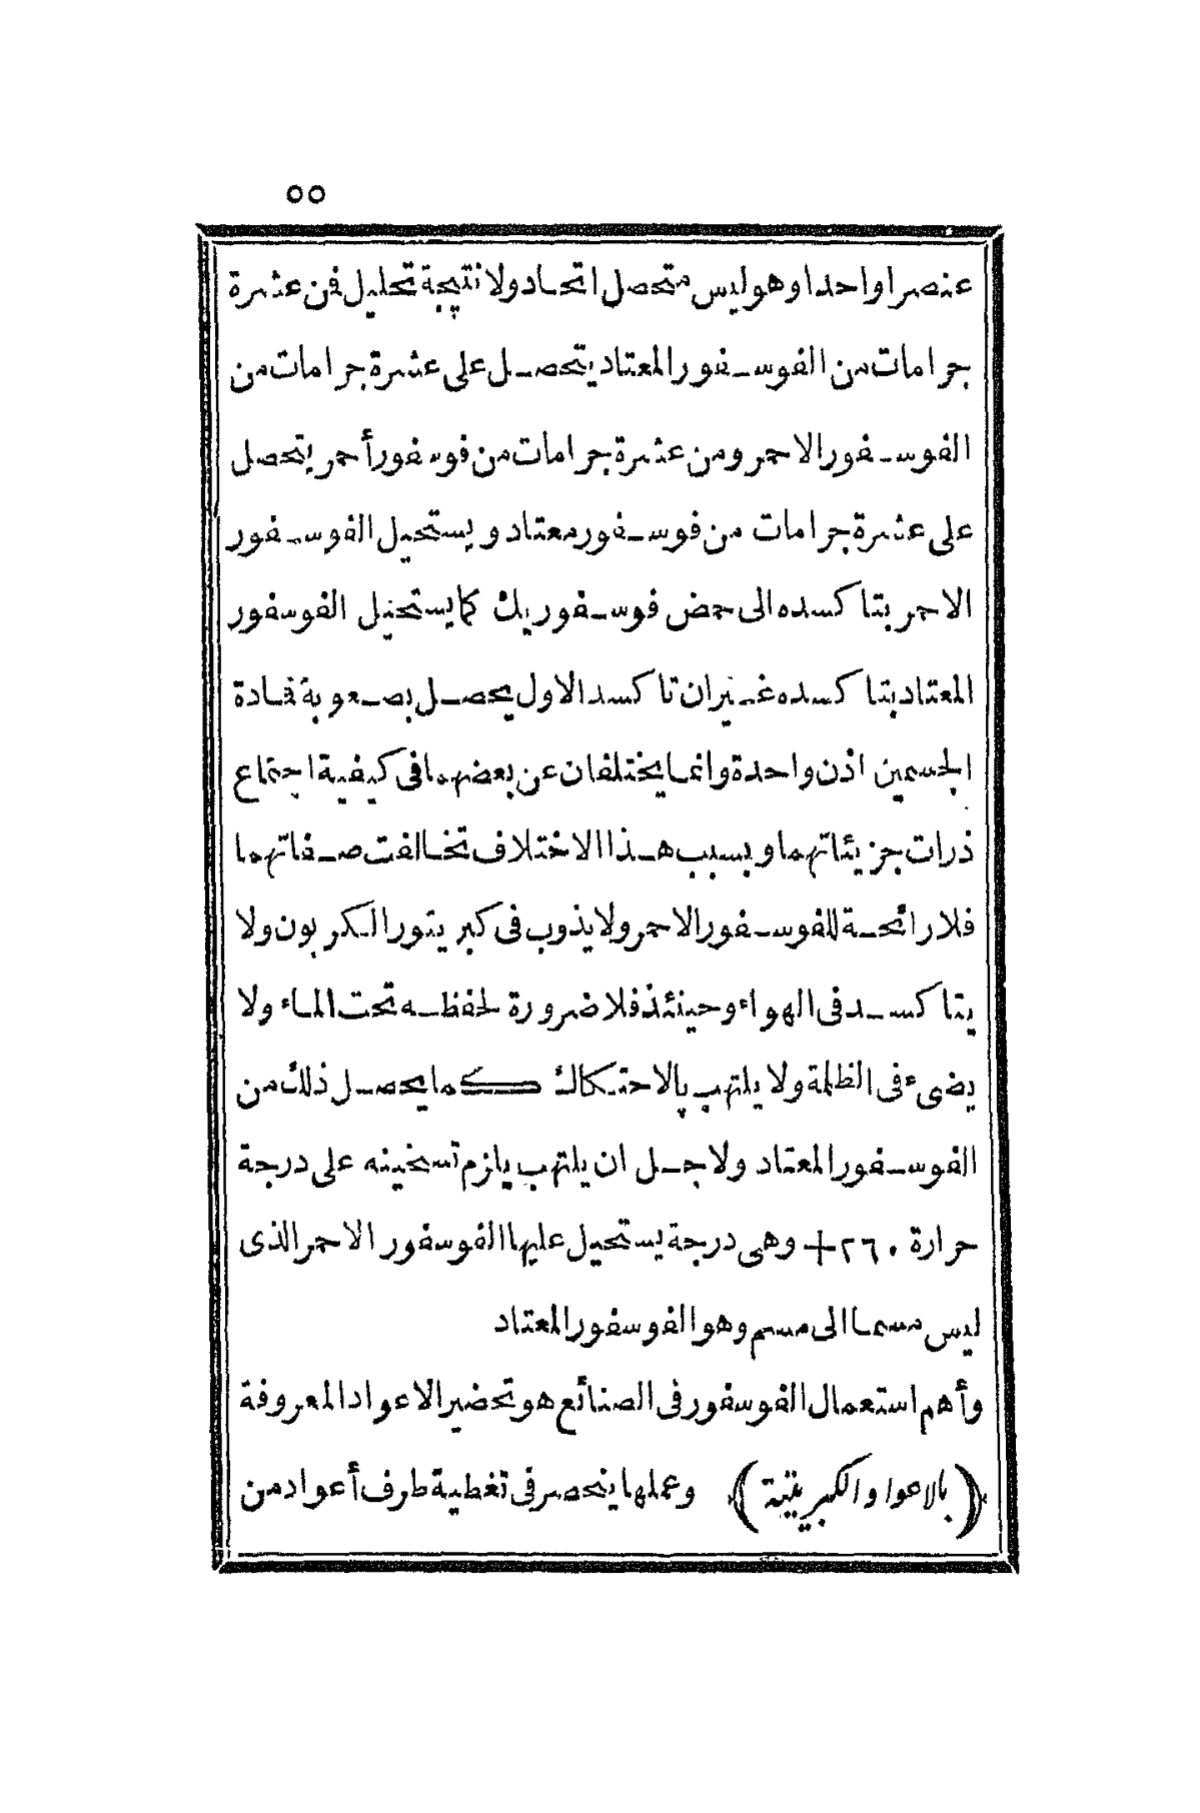 ٥٥
عنصرا واحدا وهو ليس متحصل اتحاد ولا نتيجة تحليل فن عشرة
جرامات من الفوسفور المعتاد يتحصل على عشرة جرامات من
الفوسفور الاحمر ومن عشرة جرامات من فوسفور أحمر يتحصل
على عشرة جرامات من فوسفور معتاد ويستحيل الفوسفور
الاحمر بتاكسده الى حمض فوسفوريك كما يستحيل الفوسفور
المعتاد بتاكسده غير ان تاكسد الاول يحصل بصعوبة فادة
الجسمين اذن واحدة وانما يختلفان عن بعضهما فى كيفية اجتماع
ذرات جزيئاتهما وبسبب هذا الاختلاف تخالفت صفاتهما
فلا رائحة للفوسفور الاحمر ولا يذوب فى كبريتور الكربون ولا
يتاكسد فى الهواء وحينئذ فلا ضرورة لحفظه تحت الماء ولا
يضىء فى الظلمة ولا يلتهب بالاحتكاك كما يحصل ذلك من
الفوسفور المعتاد ولاجل ان يلتهب يلزم تسخينه على درجة
حرارة ٢٦٠+ وهى درجة يستحيل عليها الفوسفور الاحمر الذى
ليس مسما الى مسم وهو الفوسفور المعتاد
وأهم استعمال الفوسفور فى الصنائع هو تحضير الاعواد المعروفة
(بالاعواد الكبريتية) وعملها ينحصر فى تغطية طرف أعواد من